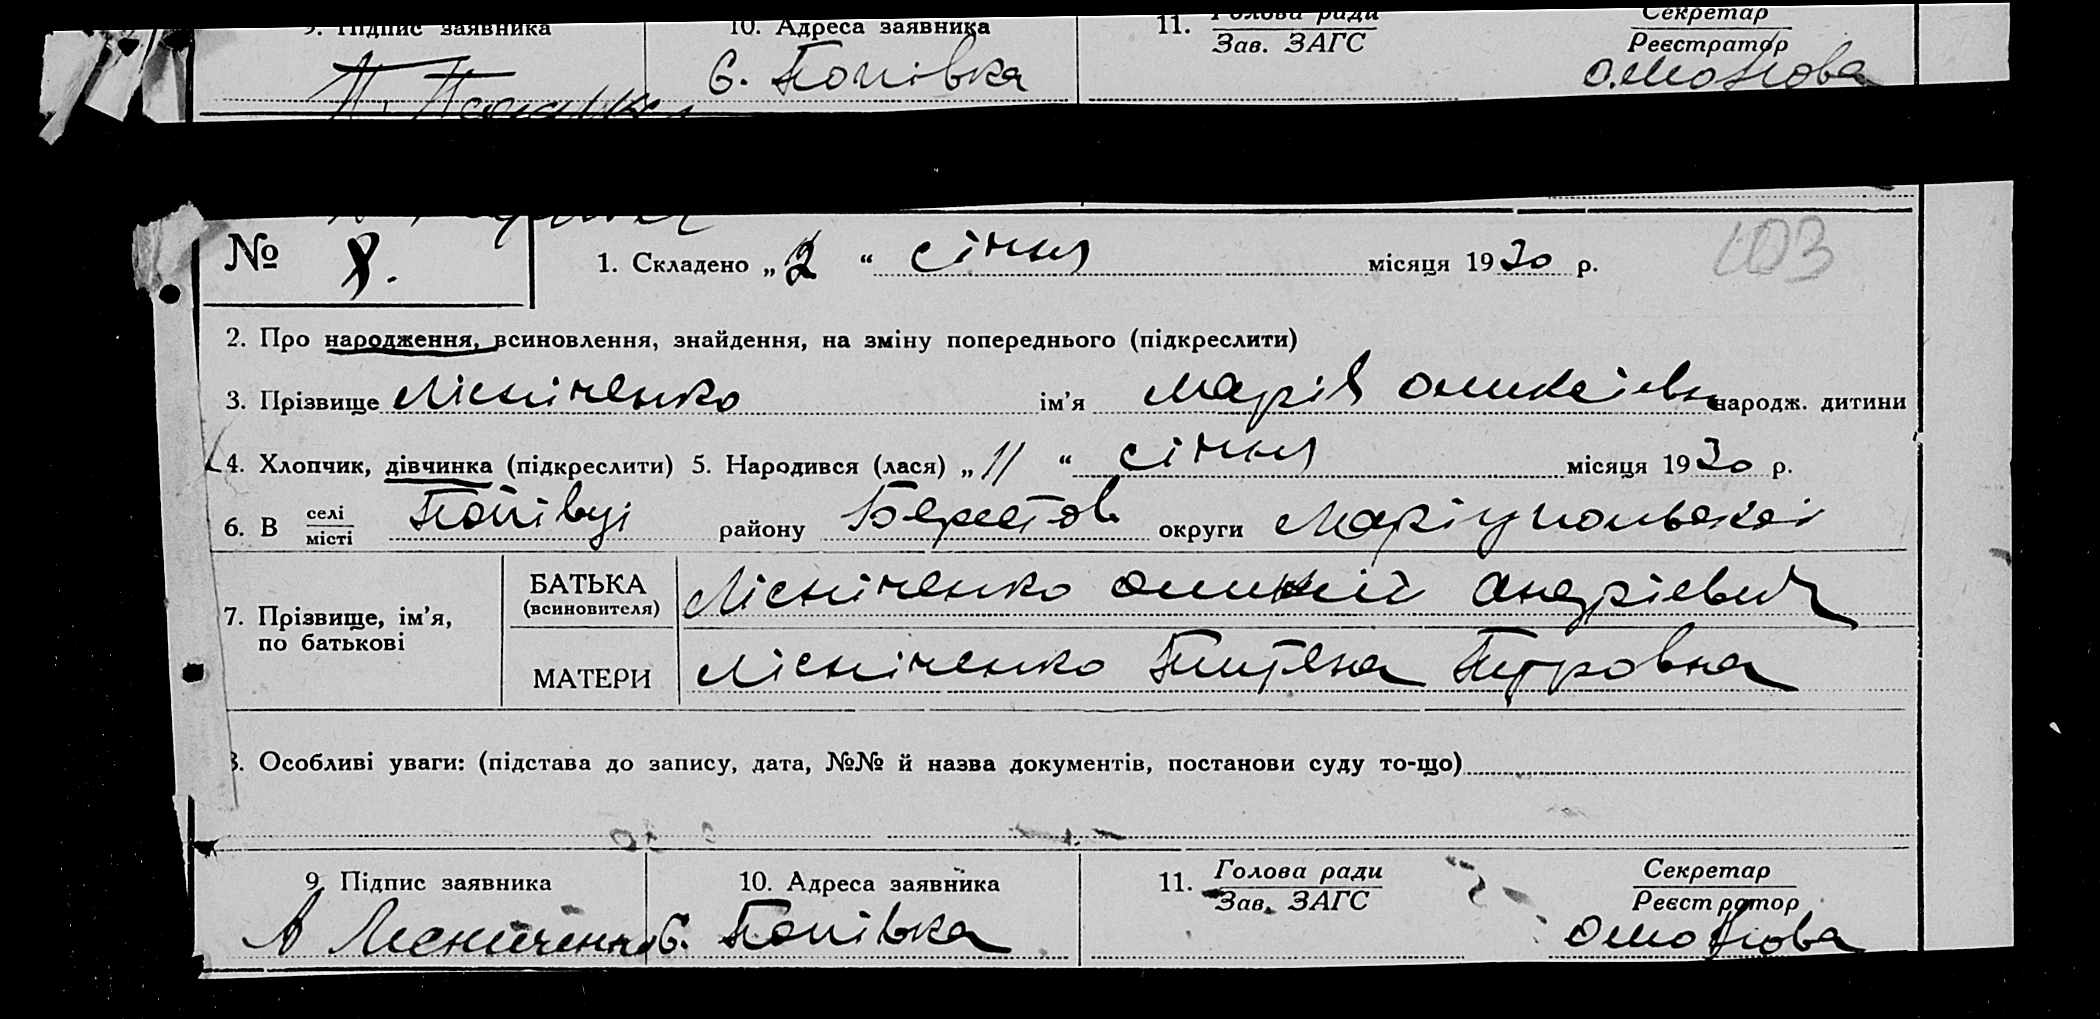 9. Підпис заявника 10. Адреса заявника 11. Голова ради Секретар
Зав. ЗАГС Реєстратор
с. Попівка
№ 8. 1. Складено „ 2 “ січня місяця 1930 р. 103
2. Про народження, всиновлення, знайдення, на зміну попереднього (підкреслити)
3. Прізвище Лісніченко ім’я Марія народж. дитини
4. Хлопчик, дівчинка (підкреслити) 5. Народився (лася) „ 11 “ січня місяця 1930 р.
6. В селі Попівці району Берестов. округи Маріупольської
місті
БАТЬКА Лісніченко Андрієвич
(всиновителя)
7. Прізвище, ім’я,
по батькові
МАТЕРИ Лісніченко Петровна
8. Особливі уваги: (підстава до запису, дата, №№ й назва документів, постанови суду то-що)
9. Підпис заявника 10. Адреса заявника 11. Голова ради Секретар
Зав. ЗАГС Реєстратор
А Лісніченко с. Попівка